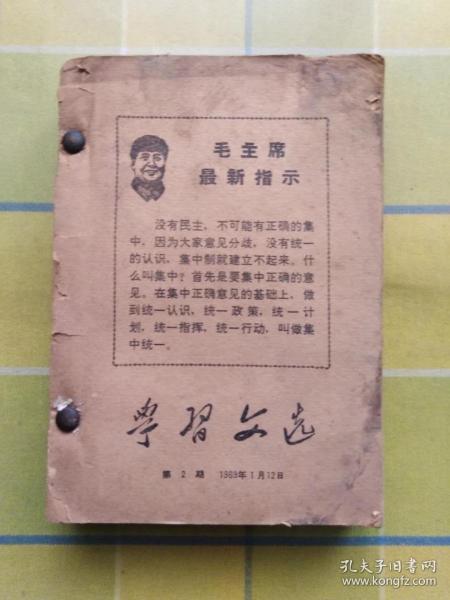 毛主席
最新指示
没有民主，不可能有正确的集
中，因为大家意见分歧，没有统一
的认识，集中制就建立不起来。什
么叫集中？首先是要集中正确的意
见。在集中正确意见的基础上，做
到统一认识，统一政策，统一计
划，统一指挥，统一行动，叫做集
中统一。
學習文选
第2期 1969年1月12日
孔夫子旧书网
www.kongfz.com